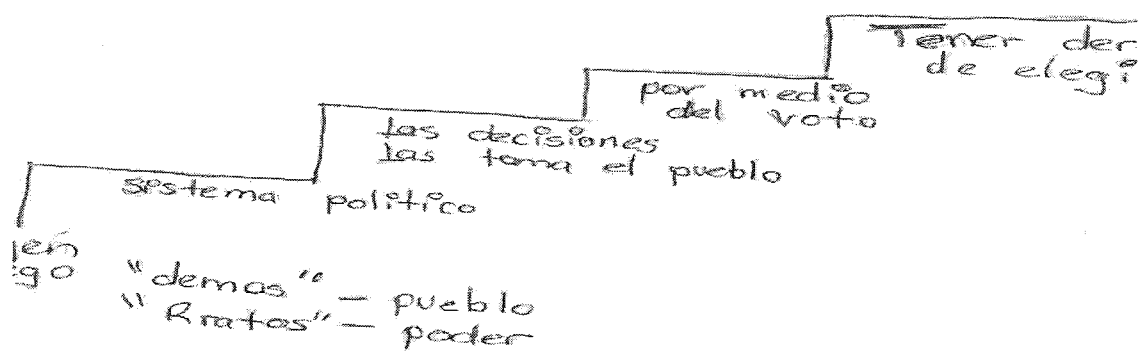 Tener der
de elegi
por medio
del voto
las decisiones
las toma el pueblo
sistema político
gen
ego
"demas" – pueblo
"Rratos" – poder